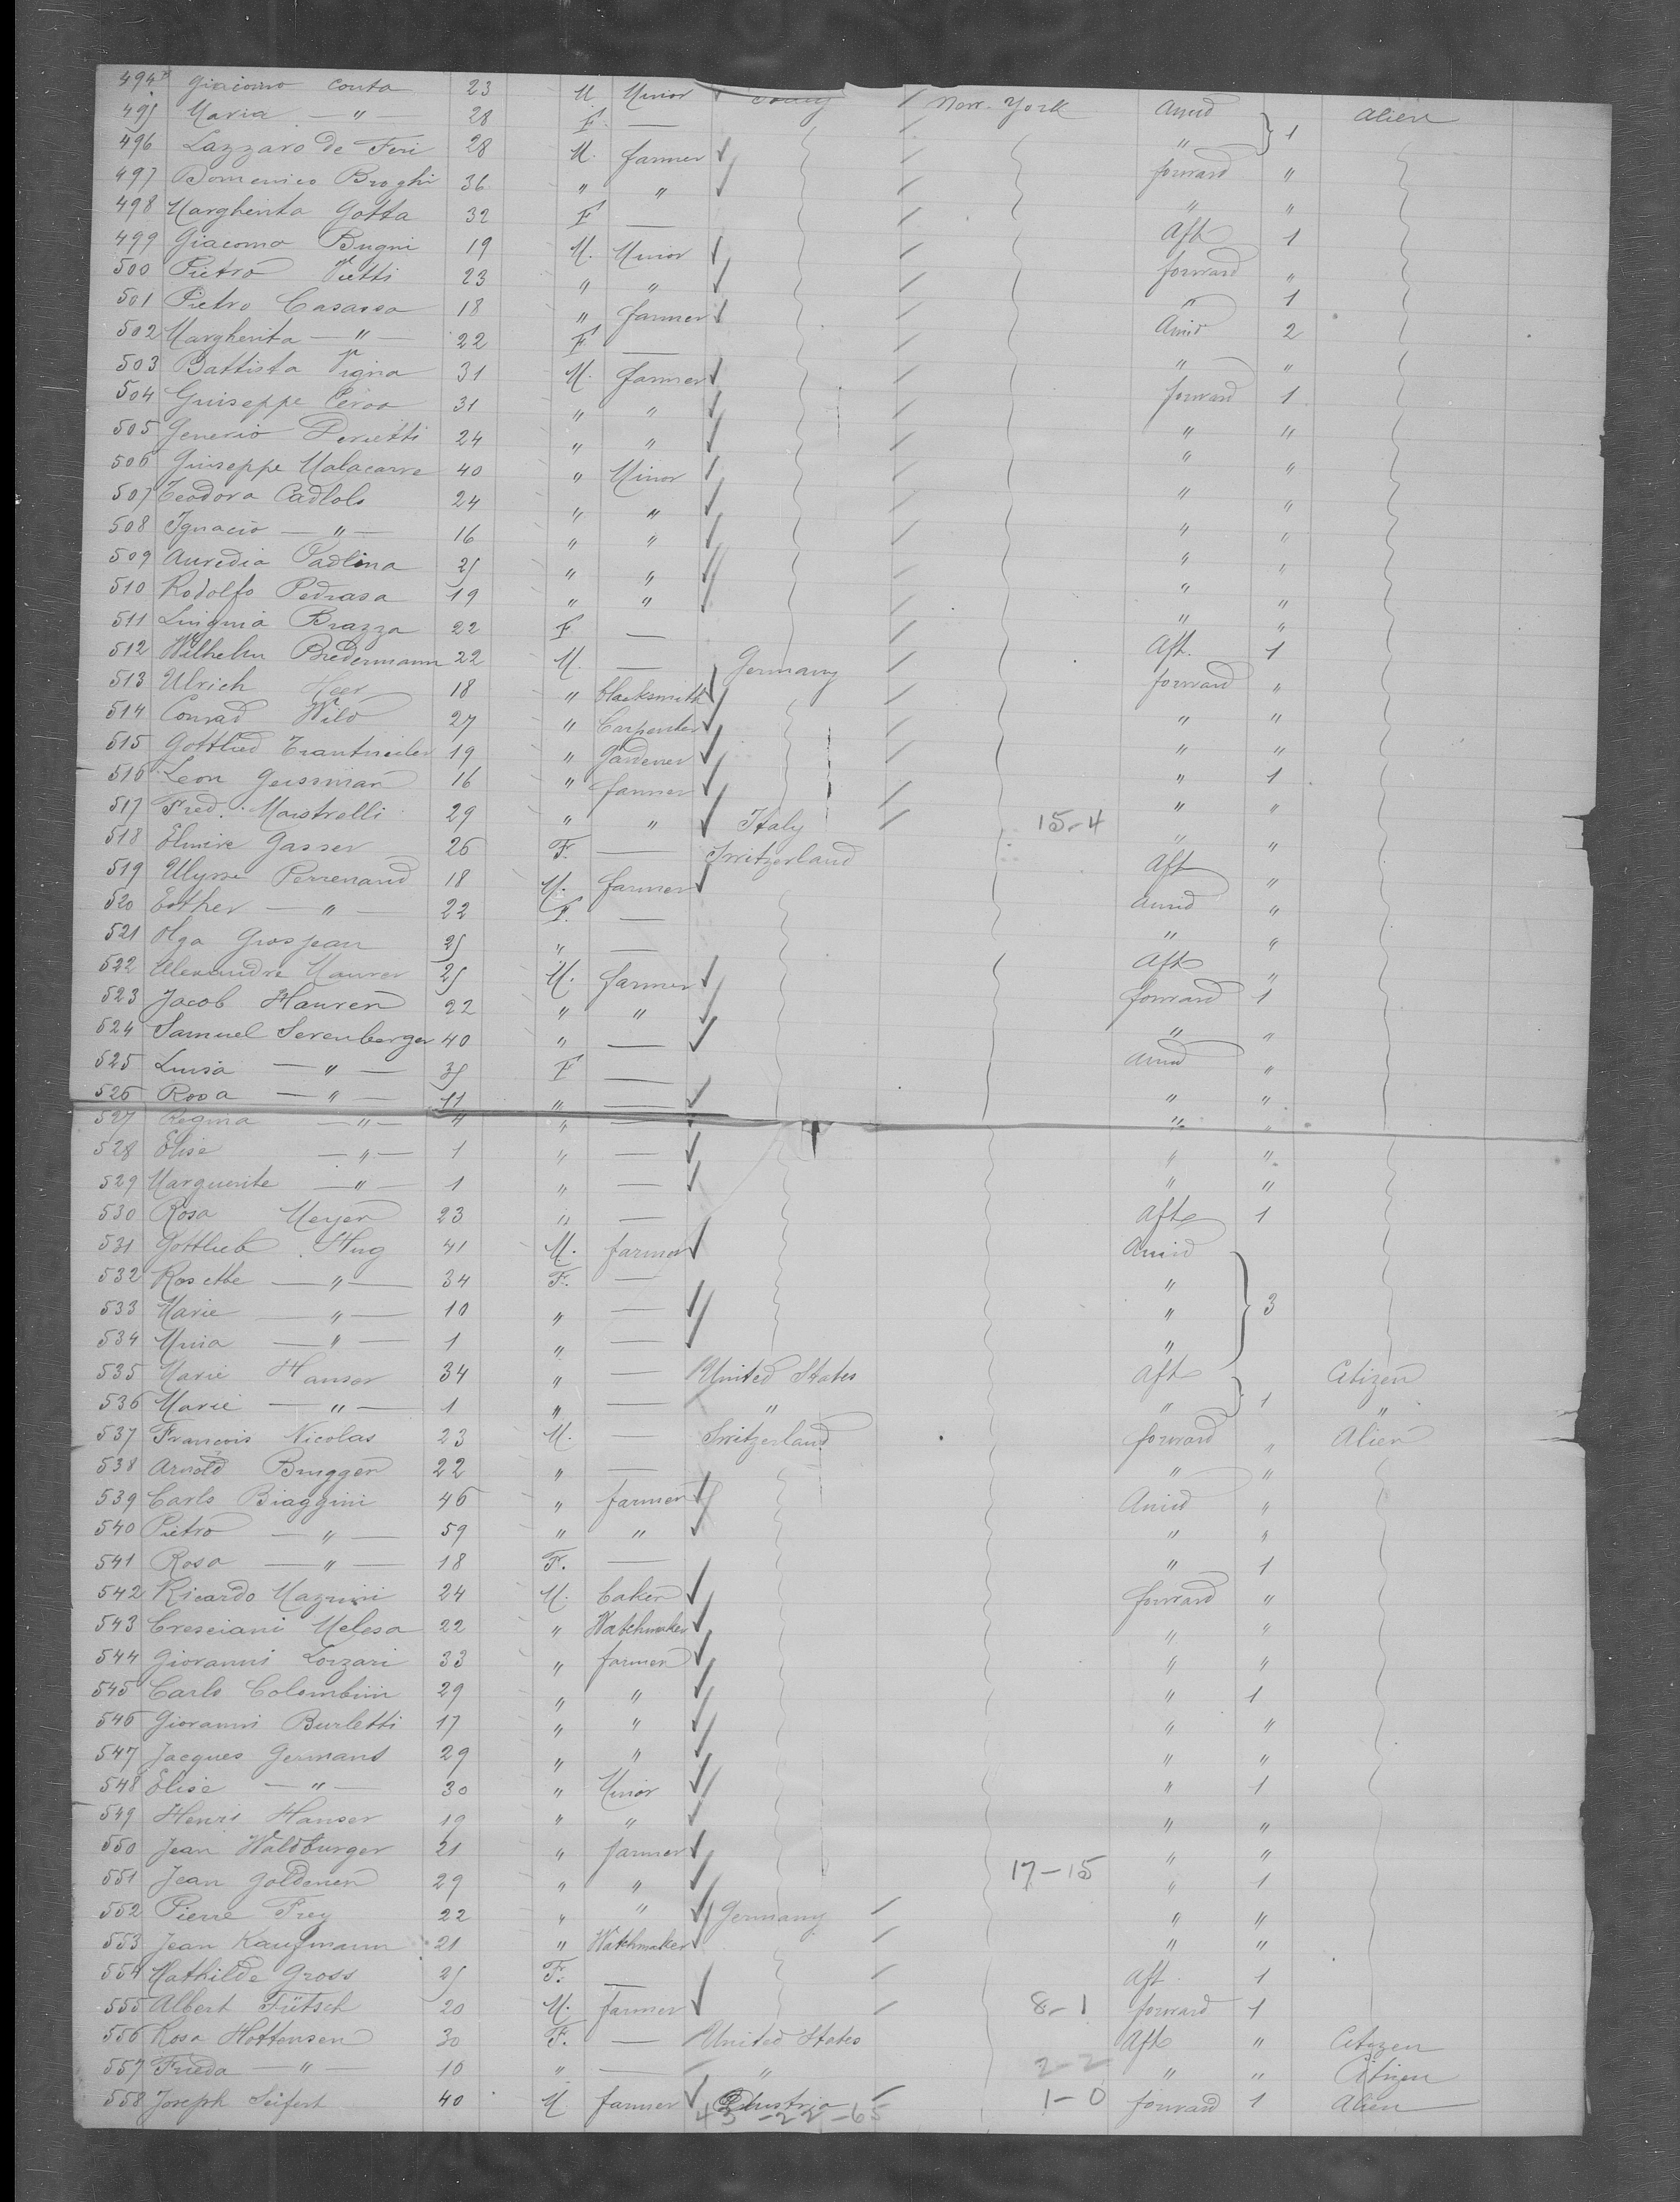 494 Giacomo Conta 23 M. Minor Italy New-York Amid Alien
495 Maria — " — 28 F. — " 1
496 Lazzaro de Feri 28 M. farmer forward "
497 Domenico Broghi 36 " " " "
498 Margherita Gotta 32 F — Aft 1
499 Giacomo Bugni 19 M. Minor forward "
500 Pietro Vietti 23 " " " 1
501 Pietro Casassa 18 " farmer Amid 2
502 Margherita — " — 22 F. — " "
503 Battista Vigna 31 M. farmer forward 1
504 Guiseppe Ceroo 31 " " " "
505 Generio Perietti 24 " " " "
506 Guiseppe Malacarre 40 " Minor " "
507 Teodora Cadlolo 24 " " " "
508 Ignacio — " — 16 " " " "
509 Auredia Padlina 25 " " " "
510 Rodolfo Pedrasa 19 " " " "
511 Luignia Brazza 22 F — Aft. 1
512 Wilhelm Bredermann 22 M. — Germany forward "
513 Ulrich Heer 18 " blacksmith " "
514 Conrad Wild 27 " Carpenter " "
515 Gottlied Trautweiler 19 " Gardener " 1
516 Leon Geissman 16 " farmer " "
517 Fred. Maistrelli 29 " " Italy 15-4 " "
518 Elmire Gasser 26 F. — Switzerland Aft "
519 Ulysse Perrenand 18 M. farmer Amid "
520 Esther — " — 22 F. — " "
521 Olga Grosjean 25 " — Aft "
522 Alexandre Maurer 25 M. farmer forward 1
523 Jacob Hauren 22 " " " "
524 Samuel Serenberger 40 " — Amid "
525 Luisa — " — 35 F — " "
526 Rosa — " — 11 " — " "
527 Regina — " — 4 " — "
528 Elise — " — 1 " — " "
529 Marguerite — " — 1 " — " "
530 Rosa Meyer 23 " — Aft 1
531 Gottlieb Hug 41 M. farmer Amid
532 Rosette — " — 34 F. — "
533 Marie — " — 10 " — " 3
534 Mina — " — 1 " — "
535 Marie Hanser 34 " — United States Aft Citizen
536 Marie — " — 1 " — " " 1 "
537 François Nicolas 23 M. — Switzerland forward " Alien
538 Arnold Bruggen 22 " — " "
539 Carlo Biaggini 46 " farmer Amid "
540 Pietro — " — 59 " " " "
541 Rosa — " — 18 F. — " 1
542 Ricardo Mazzini 24 M. baker forward "
543 Cresciani Melesa 22 " Watchmaker " "
544 Giovanni Lorzari 33 " farmer " "
545 Carlo Colombini 29 " " " 1
546 Giovanni Burletti 17 " " " "
547 Jacques Germans 29 " " " "
548 Elise — " — 30 " Minor " 1
549 Henri Hanser 19 " " " "
550 Jean Waldburger 21 " farmer " "
551 Jean Goldenen 29 " " 17-15 " 1
552 Pierre Frey 22 " " Germany " "
553 Jean Kaufmann 21 " Watchmaker " "
554 Mathilde Gross 25 F. — Aft. 1
555 Albert Fütsch 20 M. farmer 8-1 forward 1
556 Rosa Hottensen 30 F. — United States Aft " Citizen
557 Frieda — " — 10 " — " 2-2 " " Citizen
558 Joseph Seifert 40 M farmer Austria 1-0 forward 1 Alien
43-22-65